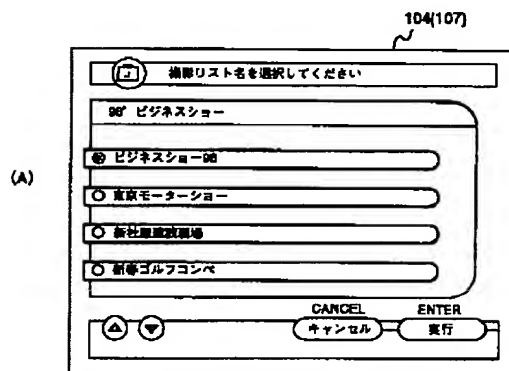 104(107)
撮影リスト名を選択してください
98° ビジネスショー
(A)
ビジネスショー98
東京モーターショー
新社屋建設現場
新春ゴルフコンペ
CANCEL ENTER
キャンセル 実行